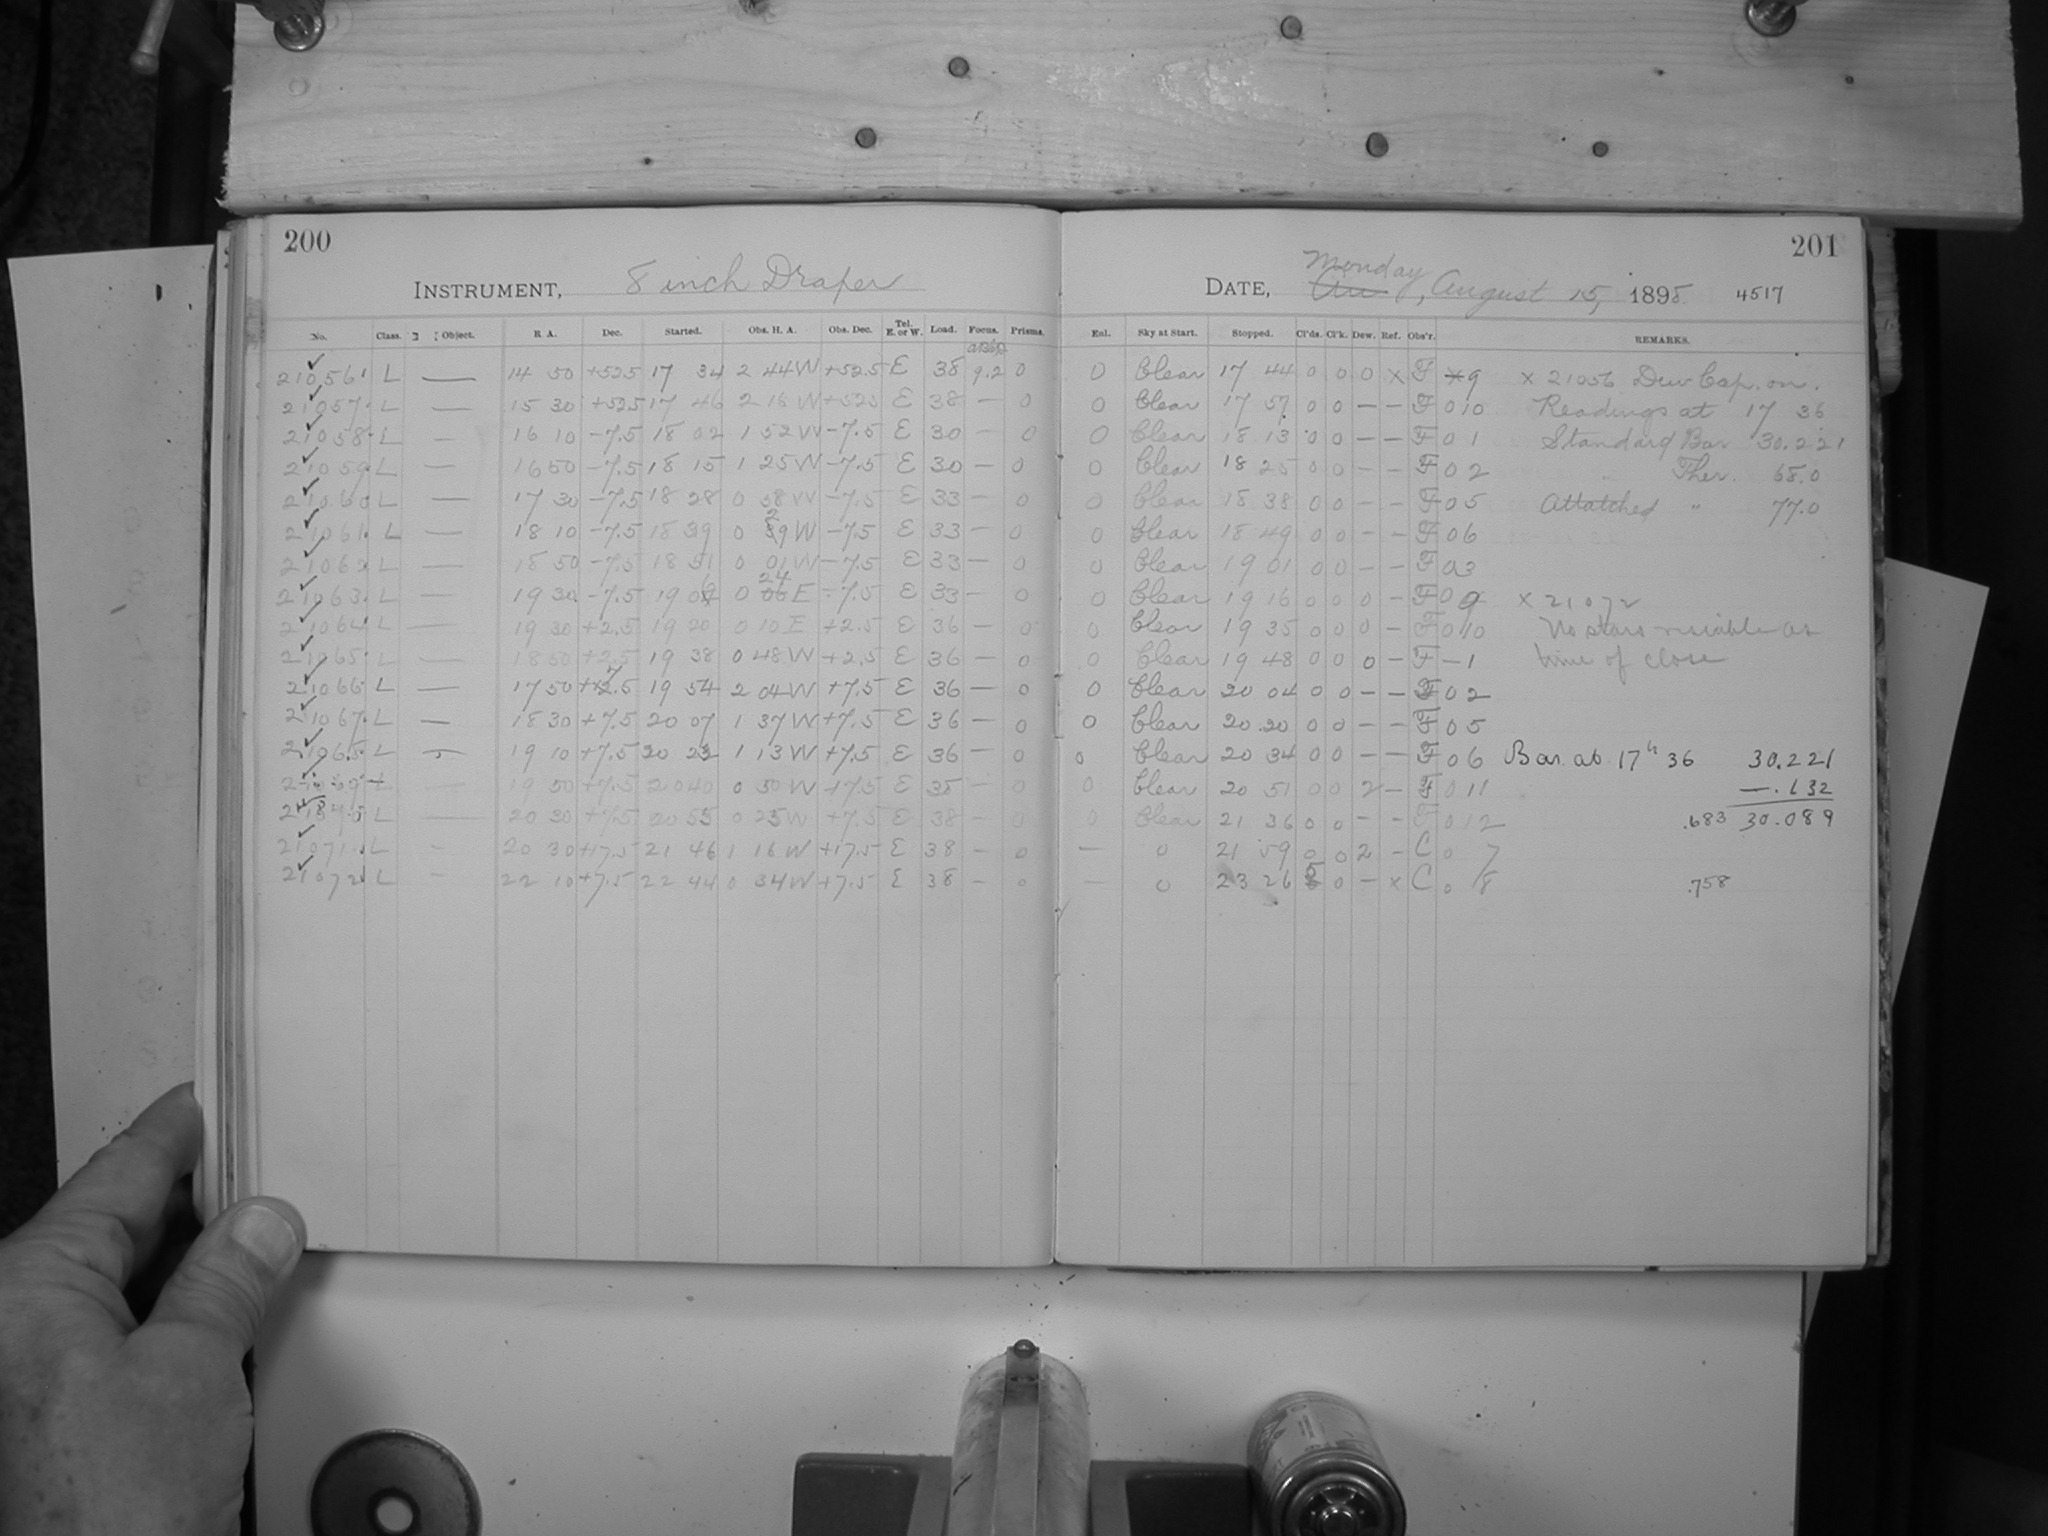 200
INSTRUMENT, 8 inch Draper
No. Class. Object. R A. Dec. Started. Obs. H. A. Obs. Dec. Tel. E. or W. Load. Focus. Prisms.
21056 L — 14 50 +52.5 17 34 2 44 W +52.5 E 38 9.2 0
21057 L — 15 30 +52.5 17 46 2 16 W +52.5 E 38 — 0
21058 L — 16 10 -7.5 18 02 1 52 W -7.5 E 30 — 0
21059 L — 16 50 -7.5 18 15 1 25 W -7.5 E 30 — 0
21060 L — 17 30 -7.5 18 28 0 58 W -7.5 E 33 — 0
21061 L — 18 10 -7.5 18 39 0 29 W -7.5 E 33 — 0
21062 L — 18 50 -7.5 18 51 0 01 W -7.5 E 33 — 0
21063 L — 19 30 -7.5 19 06 0 24 E -7.5 E 33 — 0
21064 L — 19 30 +2.5 19 20 0 10 E +2.5 E 36 — 0
21065 L — 18 50 +2.5 19 38 0 48 W +2.5 E 36 — 0
21066 L — 17 50 +7.5 19 54 2 04 W +7.5 E 36 — 0
21067 L — 18 30 +7.5 20 07 1 37 W +7.5 E 36 — 0
21068 L — 19 10 +7.5 20 23 1 13 W +7.5 E 36 — 0
21069 L — 19 50 +7.5 20 40 0 50 W +7.5 E 38 — 0
L — 20 30 +7.5 20 55 0 25 W +7.5 E 38 — 0
21071 L - 20 30 +17.5 21 46 1 16 W +17.5 E 38 — 0
21072 L - 22 10 +7.5 22 44 0 34 W +7.5 E 38 — 0
201
Monday
DATE, August 15, 1898 4517
Enl. Sky at Start. Stopped. Cl'ds. Cl'k. Dew. Ref. Obs'r. REMARKS.
0 Clear 17 44 0 0 0 x F 9 x 21056 Dew Cap. on.
0 Clear 17 57 0 0 — — F 0 10 Readings at 17 36
0 Clear 18 13 0 0 — — F 0 1 Standard Bar 30.221
0 Clear 18 25 0 0 — — F 0 2 " Ther. 68.0
0 Clear 18 38 0 0 — — F 0 5 Attatched " 77.0
0 Clear 18 49 0 0 — — F 0 6
0 Clear 19 01 0 0 — — F 0 3
0 Clear 19 16 0 0 0 — F 0 9 x 21072
0 Clear 19 35 0 0 0 — F 0 10 No stars visiable at
0 Clear 19 48 0 0 0 — F — 1 time of close
0 Clear 20 04 0 0 — — F 0 2
0 Clear 20 20 0 0 — — F 0 5
0 Clear 20 34 0 0 — — F 0 6 Bar. at 17h 36 30.221
0 Clear 20 51 0 0 2 — F 0 11 —.132
0 Clear 21 36 0 0 — — F 0 12 .683 30.089
— 0 21 59 0 0 2 — C 0 7
— 0 23 26 5 0 — x C 0 8 .758